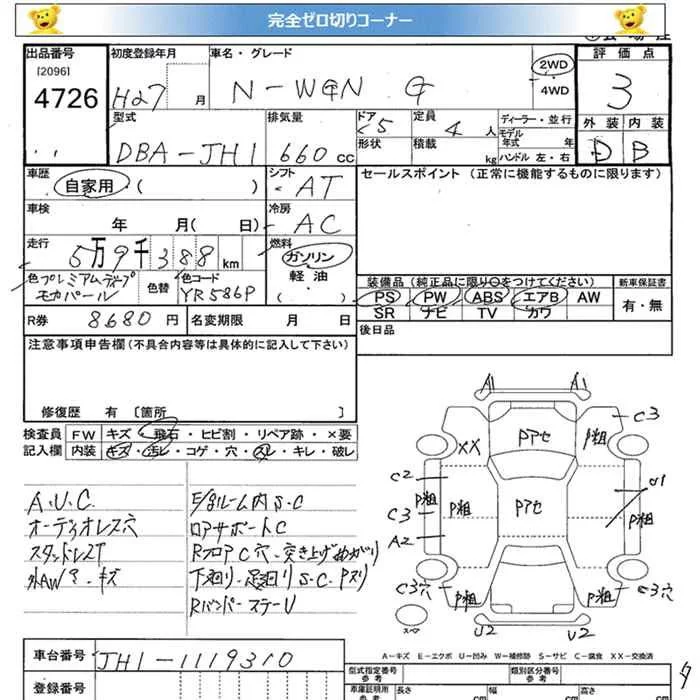 完全ゼロ切りコーナー
出品番号
[2096]
4726
初度登録年月
H27 月
車名・グレード
N-WGN G
2WD
4WD
評価点
3
外装 内装
D B
型式
DBA-JH1
排気量
660 cc
ドア
5
形状
定員
4 人
積載 kg
ディーラー・並行
モデル
年式 年
ハンドル 左・右
車歴
自家用 ( )
シフト
AT
セールスポイント (正常に機能するものに限ります)
車検
年 月( 日)
冷房
AC
走行
5万9千388 km
燃料
ガソリン
軽油
( )
色 プレミアムディープ
モカパール
色替
色コード
YR586P
装備品 (純正品に限り○をつけてください)
PS PW ABS エアB AW
SR ナビ TV カワ
新車保証書
有・無
R券 8680 円
名変期限 月 日
後日品
注意事項申告欄 (不具合内容等は具体的に記入して下さい)
修復歴 有 〔箇所 〕
検査員 FW キズ・飛石・ヒビ割・リペア跡・×要
記入欄 内装 キズ・汚レ・コゲ・穴・スレ・キレ・破レ
A.U.C.
オーディオレス穴
スタッドレスT
外AW キズ
E/gルーム内 S.C
ロアサポートC
RフロアC穴・突き上げめがり
下廻り、足廻り S.C.Pズリ
RバンパーステーU
A1 A1
C3
XX
Pアセ
P粗
C2
P粗
P粗
Pアセ
U1
P粗
C3
A2
C3穴
P粗
P粗
C3穴
スペア
U2 U2
A－キズ E－エクボ U－凹み W－補修跡 S－サビ C－腐食 XX－交換済
車台番号
JH1-1119310
登録番号
型式指定番号
参考
類別区分番号
参考
車庫証明用
参考
長さ cm
幅 cm
高さ cm